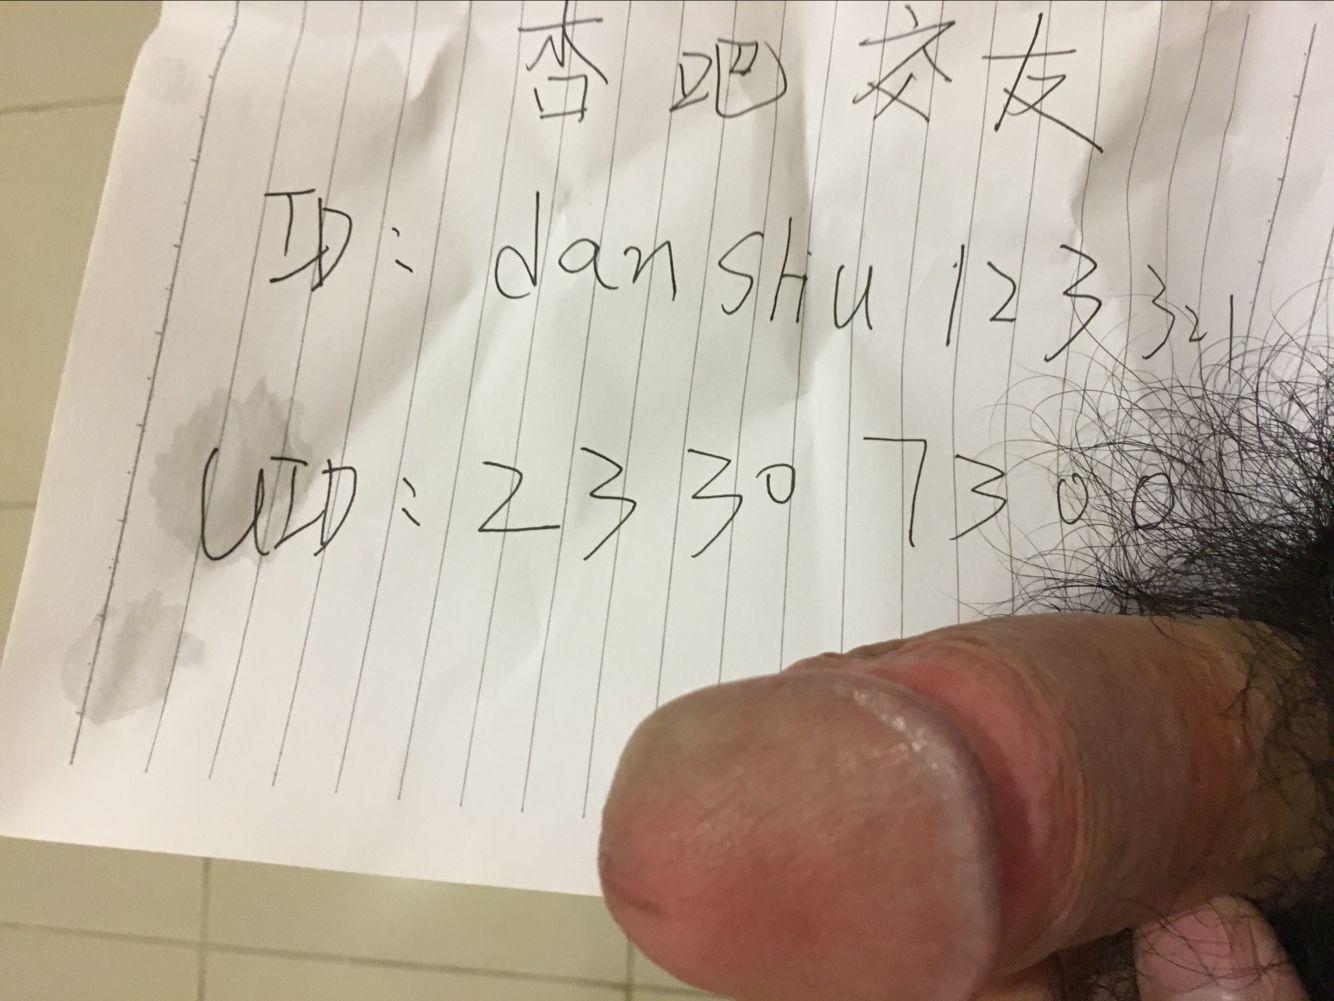 杏吧交友
ID: danshu123321
UID: 23307300